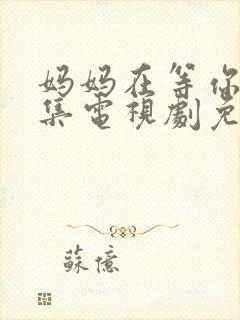 妈妈在等你
集電視劇免
蘇億